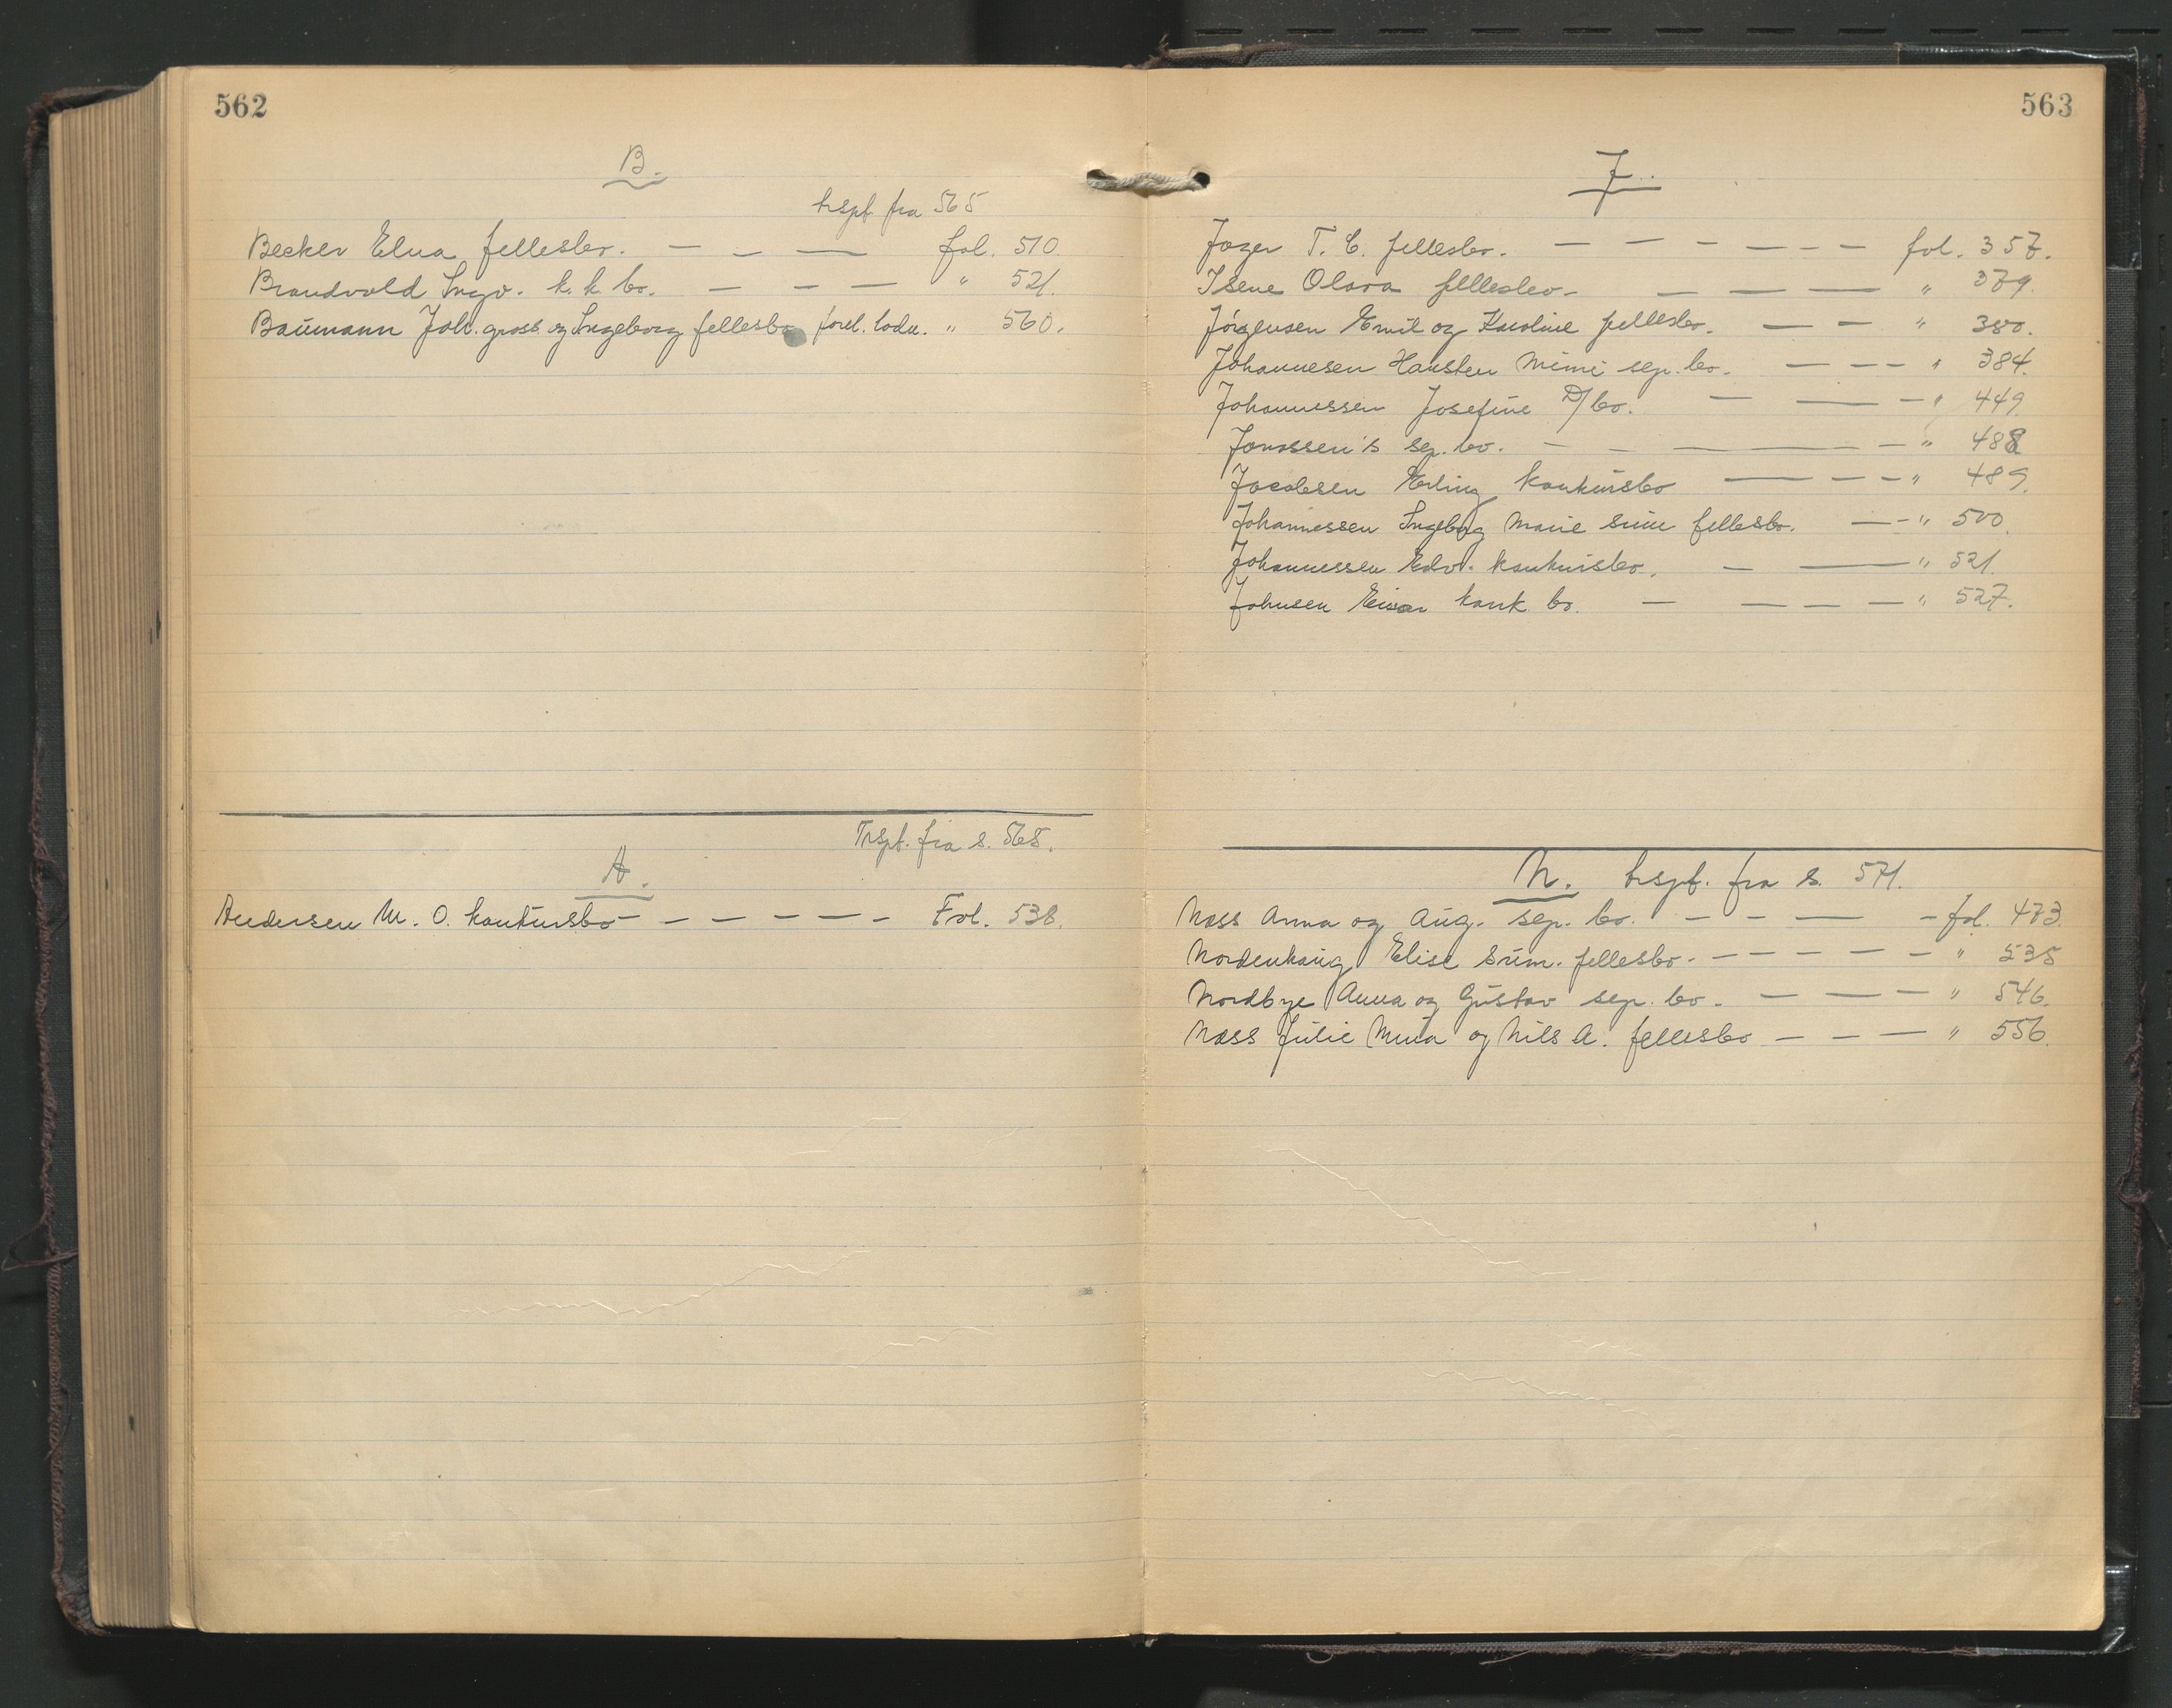 562
B.
trspt. fra 565
Becker Elna fellesbo. — — — fol. 510.
Brandvold Ingv. k.k. bo. — — — " 521.
Baumann Joh. gross. og Ingeborg fellesbo forel. lodn. " 560.
Trspt. fra s. 565.
A.
Andersen M. O. konkursbo — — — — — — Fol. 538.
563
J.
Jager T. C. fellesbo. — — — — — — fol. 357.
Isene Olava fellesbo — — — — " 379.
Jørgensen Emil og Karoline fellesbo. — — " 380.
Johannesen Hansten Mimi sep. bo. — — — " 384.
Johannessen Josefine D/bo. — — — " 449.
Jonassen's sep. bo. — — — — " 488
Jacobsen Erling konkursbo — — — — " 489.
Johannessen Ingeborg Marie sum fellesbo. — — " 500.
Johannessen Edv. konkursbo. — — " 521.
Johnsen Einar konk. bo. — — — — " 527.
N. trspt. fra s. 571.
Næss Anna og Aug. sep. bo. — — — — fol. 473.
Nordenhaug Elise sum. fellesbo. — — — — — " 535
Nordbye Anna og Gustav sep. bo. — — — " 546.
Næss Julie Mina og Nils A. fellesbo — — — " 556.